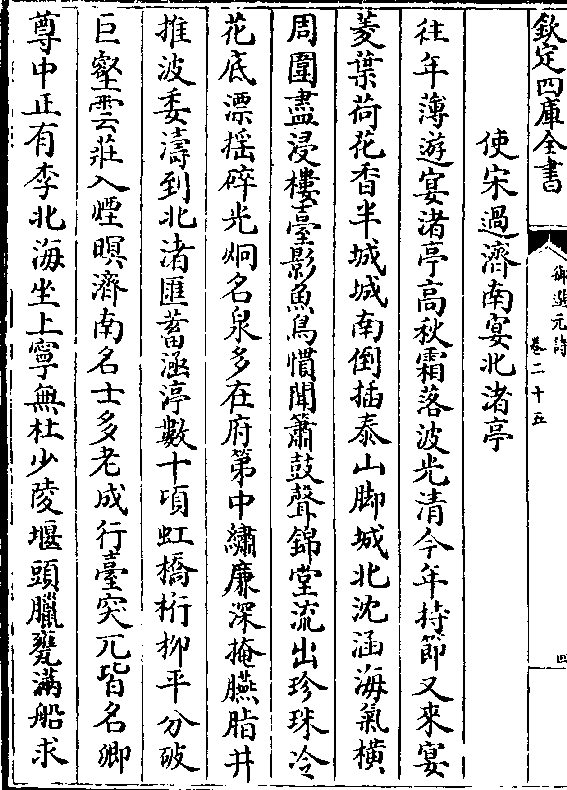 欽定四庫全書
御選元詩
卷二十五
四
使宋過濟南宴北渚亭
往年薄遊宴渚亭高秋霜落波光清今年持節又來宴
菱葉荷花香半城城南倒插泰山脚城北沈涵海氣橫
周圍盡浸樓臺影魚鳥慣聞簫鼓聲錦堂流出珍珠冷
花底漂摇碎光炯名泉多在府第中繡簾深掩臙脂井
推波委濤到北渚匯蓄涵渟數十頃虹橋桁栁平分破
巨壑雲莊入煙暝濟南名士多老成行臺突兀皆名卿
尊中正有李北海坐上寧無杜少陵堰頭臘甕滿船求